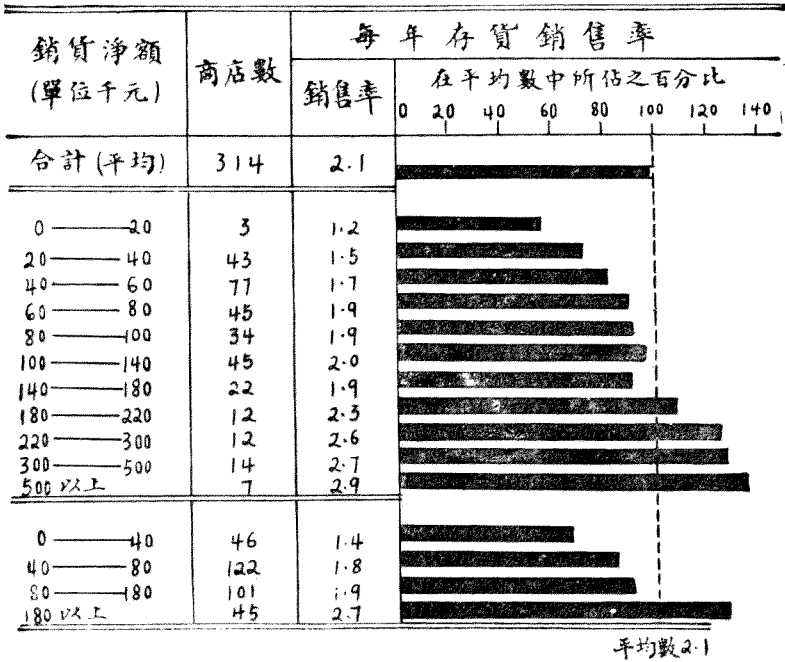 銷貨淨額
(單位千元)
商店數
每年存貨銷售率
銷售率
在平均數中所佔之百分比
0 20 40 60 80 100 120 140
合計(平均) 314 2.1
0——20 3 1.2
20——40 43 1.5
40——60 77 1.7
60——80 45 1.9
80——100 34 1.9
100——140 45 2.0
140——180 22 1.9
180——220 12 2.3
220——300 12 2.6
300——500 14 2.7
500以上 7 2.9
0——40 46 1.4
40——80 122 1.8
80——180 101 1.9
180以上 45 2.7
平均數2.1